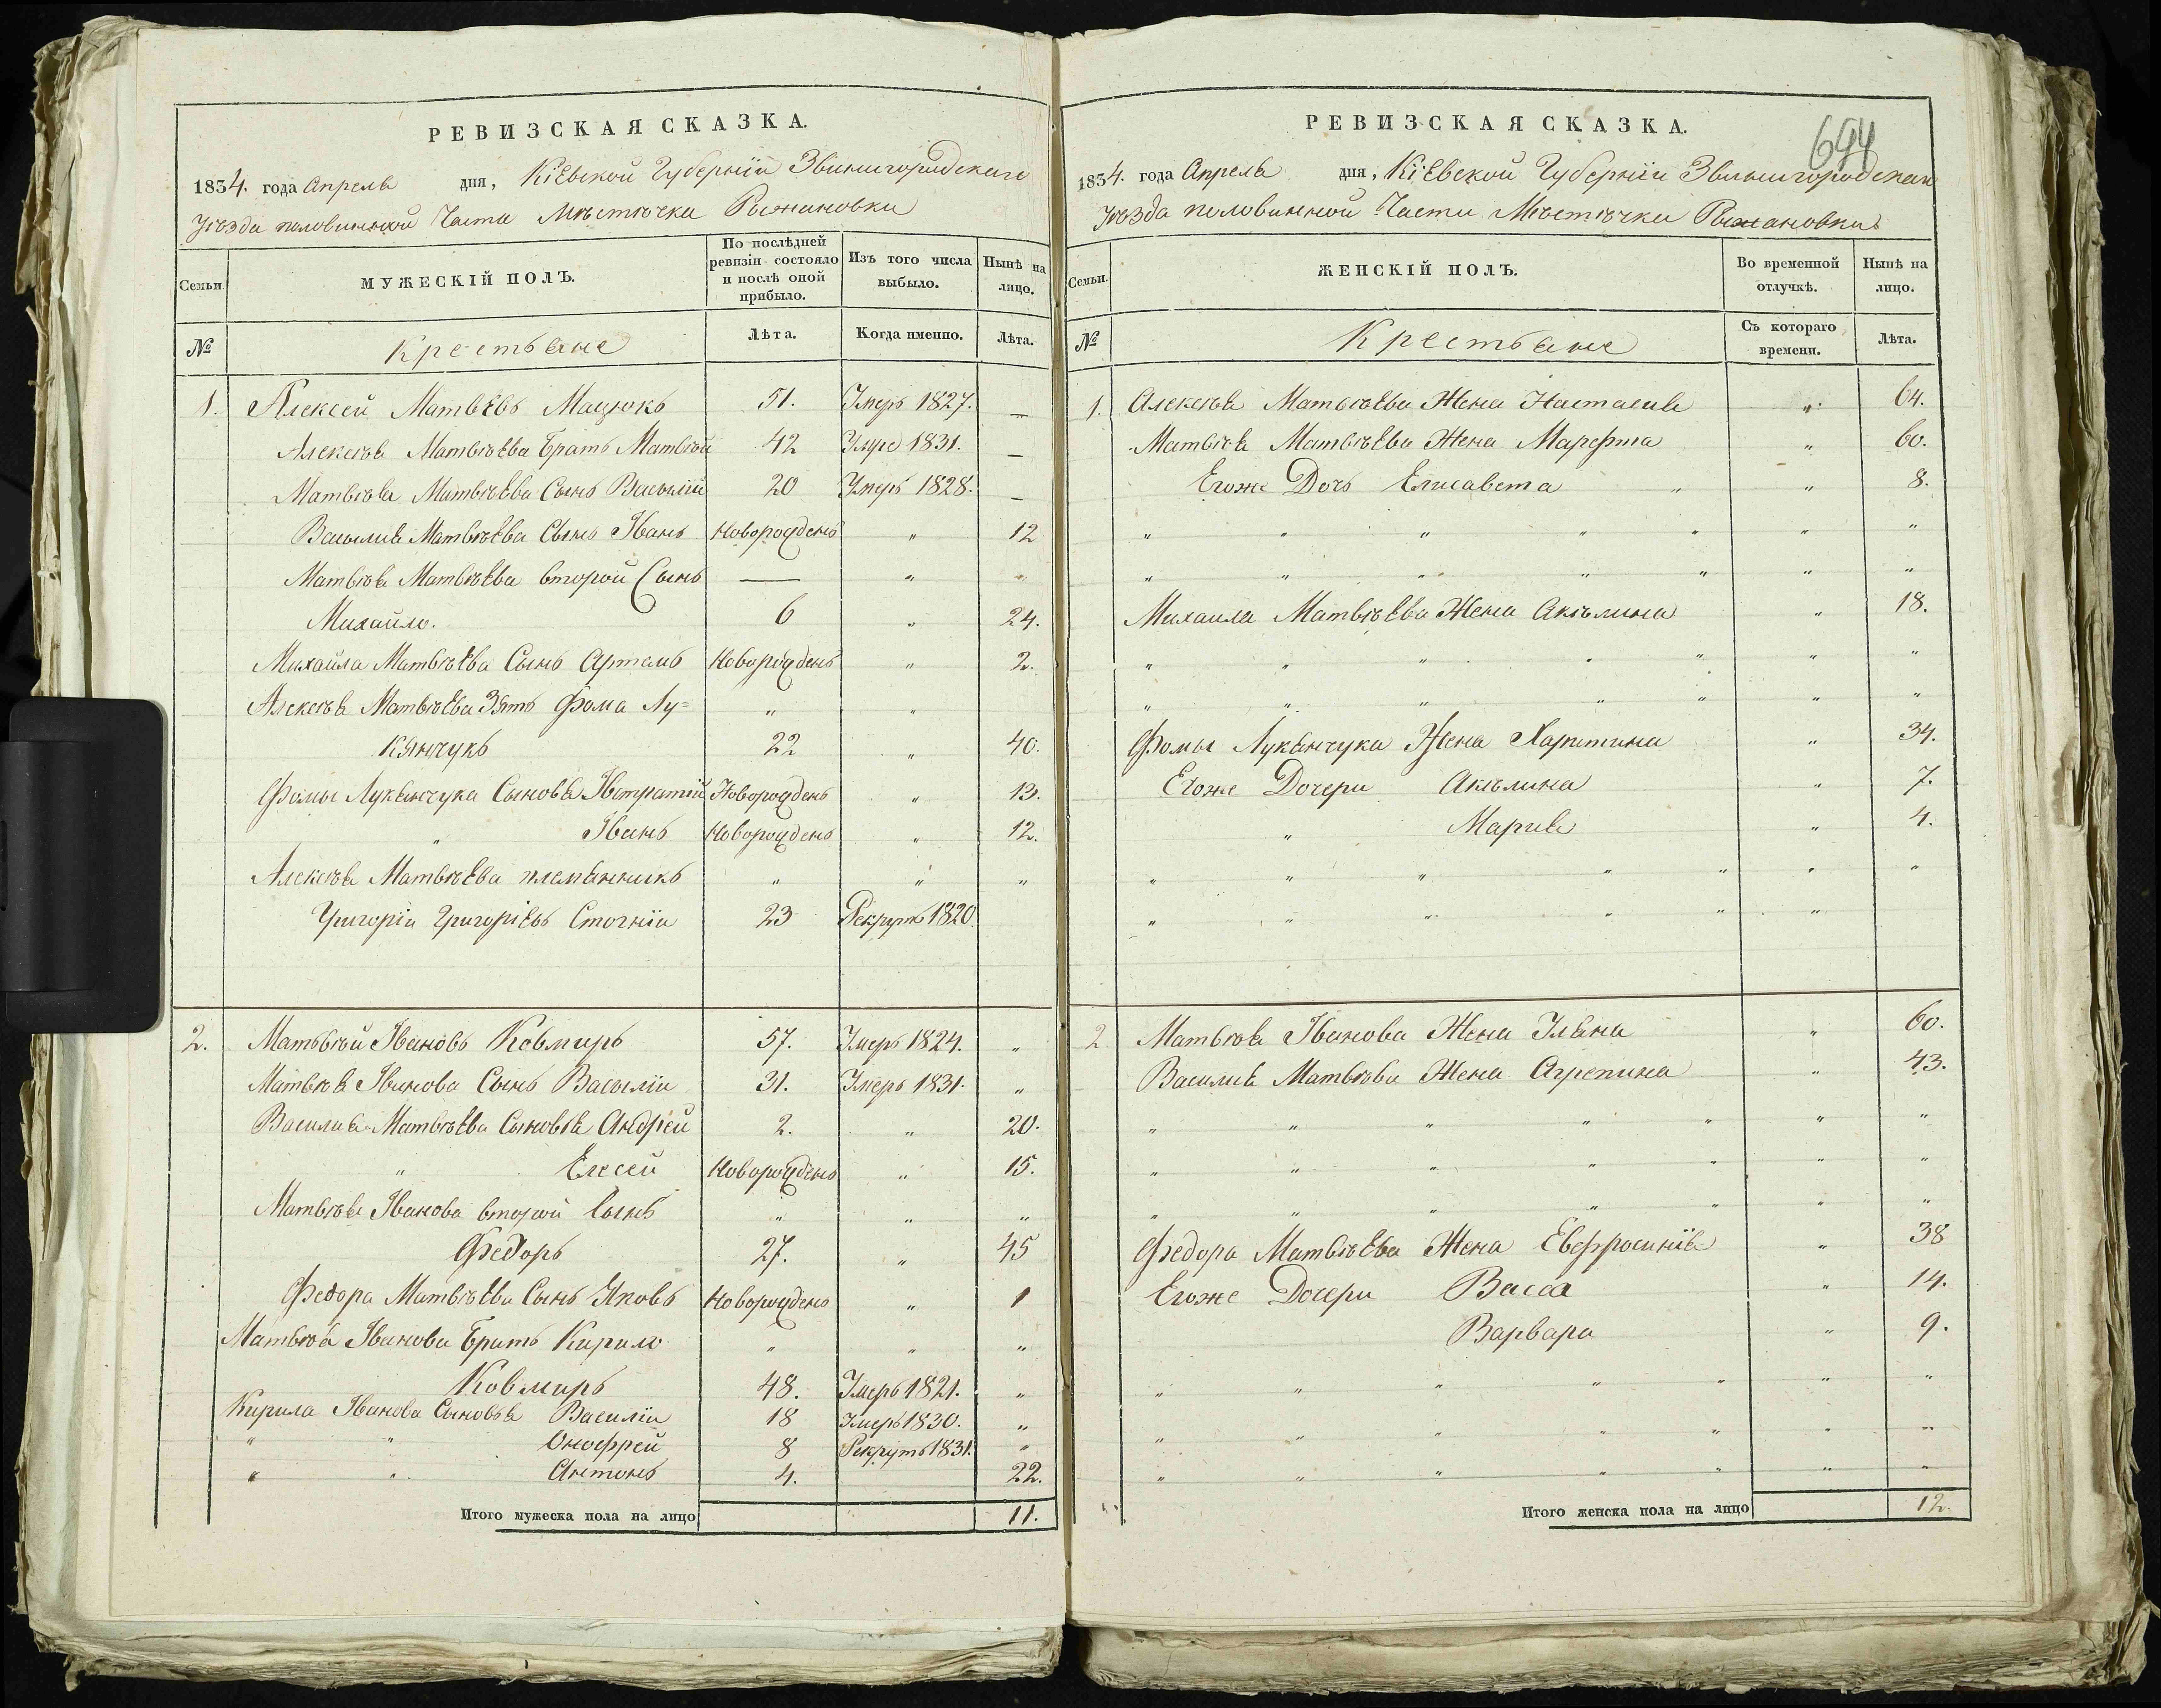 РЕВИЗСКАЯ СКАЗКА.
1834. года Апреля дня, Кіевской Губерніи Звинигородскаго
Уѣзда половинной Части Мѣстѣчка Рыжановки
Семьи.
МУЖЕСКІЙ ПОЛЪ.
По послѣдней ревизіи состояло и послѣ оной прибыло.
Изъ того числа выбыло.
Нынѣ на лицо.
№
Крестьяне
Лѣта.
Когда именно.
Лѣта.
1. Алексей Матвѣевъ Мацюкъ 51. Умеръ 1827. —
Алексѣя Матвѣева Братъ Матвѣй 42 Умре 1831. —
Матвѣя Матвѣева Сынъ Василій 20 Умеръ 1828. —
Василия Матвѣева Сынъ Іванъ Новорожденъ " 12
Матвѣя Матвѣева второй Сынъ — " "
Михайло. 6 " 24.
Михайла Матвѣева Сынъ Артемъ Новорожденъ " 2.
Алексѣя Матвѣева Зять Фома Лу=
" "
кянчукъ 22 " 40.
Фомы Лукянчука Сыновья Івтратій Новорожденъ " 13.
" Іванъ Новорожденъ " 12.
Алексѣя Матвѣева племянникъ " " "
Григорій Григоріевъ Стогній 23 Рекрутъ 1820.
2. Матьвѣй Івановъ Ковмиръ 57. Умеръ 1824. "
Матвѣя Іванова Сынъ Василій 31. Умеръ 1831. "
Василия Матвѣева Сыновья Андрей 2. " 20.
" Елесей Новорожденъ " 15.
Матвѣя Іванова второй Сынъ " " "
Федоръ 27. " 45
Федора Матвѣева Сынъ Яковъ Новорожденъ " 1
Матвѣя Іванова Братъ Кирило " " "
Ковмиръ 48. Умеръ 1821. "
Кирила Іванова Сыновья Василій 18 Умеръ 1830. "
" " Оноффрей 8 Рекрутъ 1831. "
" " Антонъ 4. 22.
Итого мужеска пола на лицо 11.
694
РЕВИЗСКАЯ СКАЗКА.
1834. года Апреля дня, Кіевской Губерніи Звинигородскаго
Уѣзда половинной Части Мѣстѣчка Рыжановки
Семьи.
ЖЕНСКІЙ ПОЛЪ.
Во временной отлучкѣ.
Нынѣ на лицо.
№
Крестьяне
Съ котораго времени.
Лѣта.
1. Алексѣя Матвѣева Жена Настасия " 64.
Матвѣя Матвѣева Жена Мареѳта " 60.
Егоже Дочь Елисавета " " 8.
" " " " " " "
" " " " " " "
Михаила Матвѣева Жена Акѣлина " 18.
" " " " " " "
" " " " " " "
Фомы Лукянчука Жена Харитина " 34.
Егоже Дочери Акѣлина " 7.
" Мария " 4.
" " " " " " "
" " " " " "
2 Матвѣя Іванова Жена Уляна " 60.
Василия Матвѣева Жена Агрепина " 43.
" " " " " " "
" " " " " " "
" " " " " " "
Федора Матвѣева Жена Евфросинія " 38
Егоже Дочери Васса " 14.
Варвара " 9.
" " " " " " "
" " " " " " "
" " " " " " "
Итого женска пола на лицо 12.